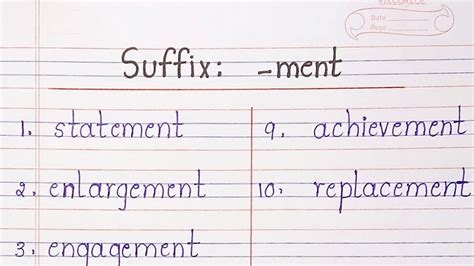 CLASSMATE
Date
Page
Suffix: -ment
1. statement
2. enlargement
3. engagement
9. achievement
10. replacement